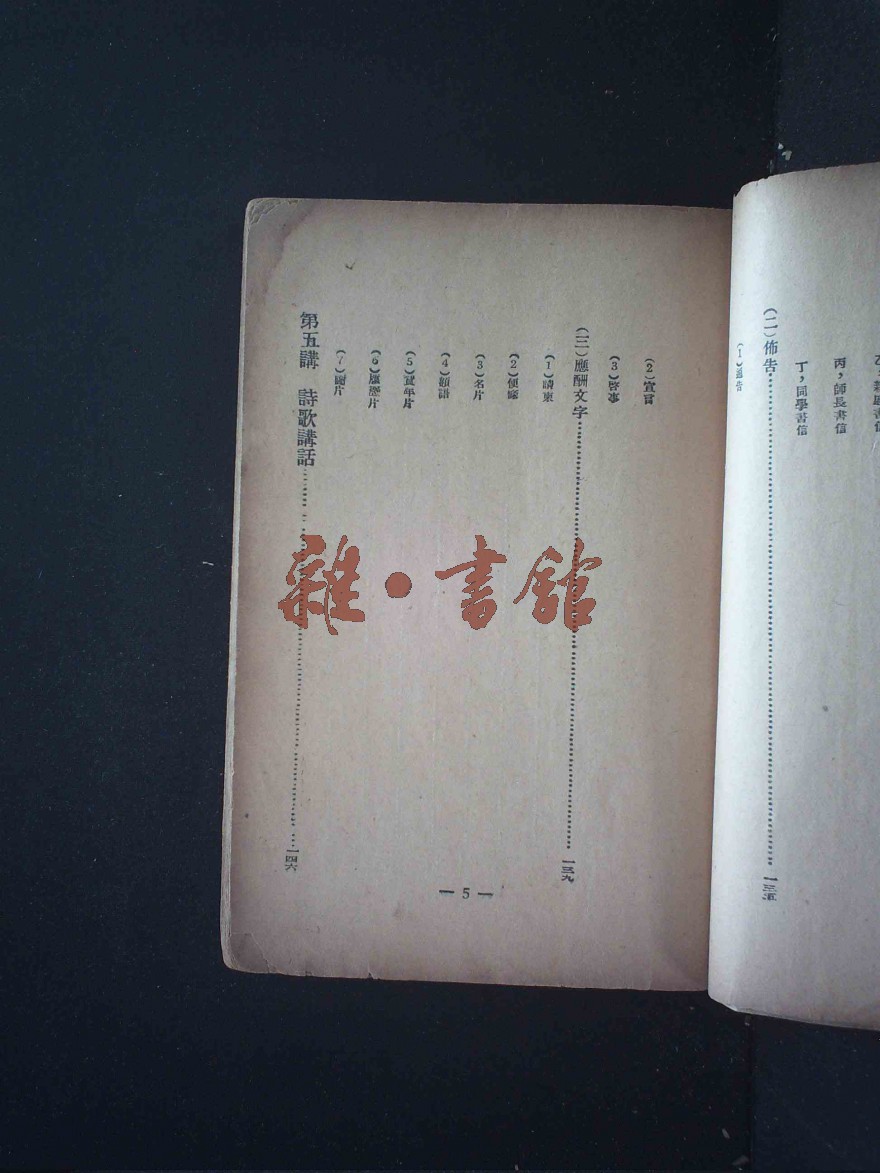 丙，師長書信
丁，同學書信
(二)佈告……一三五
(1)通告
(2)宣言
(3)啓事
(三)應酬文字……一三九
(1)請柬
(2)便條
(3)名片
(4)題語
(5)賀年片
(7)謝片
第五講 詩歌講話……一四六
— 5 —
雜·書館